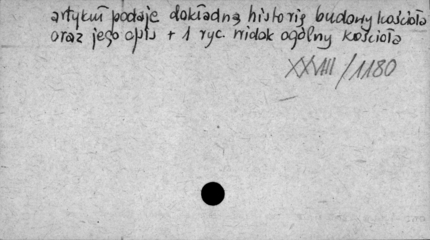 artykuł podaje dokładną historię budowy kościoła
oraz jego opis + 1 ryc. widok ogólny kościoła
XXVIII/1180